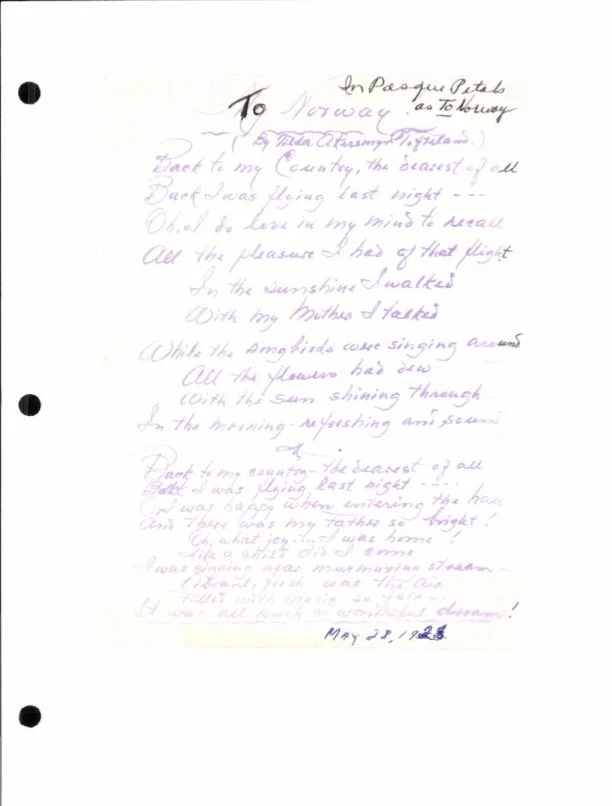 In Pasque Petals
as To Norway
To Norway
(By Tilda
Back to my Country, the dearest of all
Back I was flying last night ---
Oh, I do love in my mind to recall
All the pleasure I had of that flight
In the sunshine I walked
With my Mother I talked
While the songbirds were singing around
All the flowers had dew
With the sun shining through
In the morning - refreshing and sound
Back to my country - the dearest of all
Back I was flying last night ----
I was happy when entering the hall
And there was my father so bright!
Oh, what joy.... I was home!
Like a did I come
I was singing near murmuring stream -
fresh was the air
Filled with music so fair --
It was all such a wonderful dream!
May 28, 192